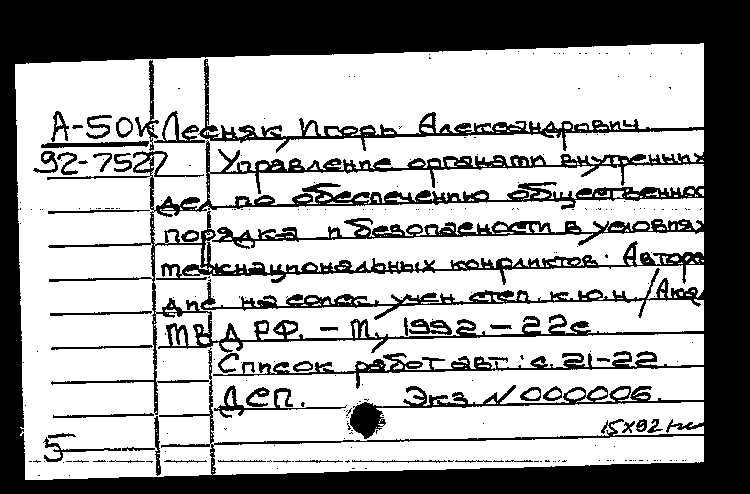 А-50К Лесняк, Игорь Александрович.
92-7527 Управление органами внутренних
дел по обеспечению общественно
порядка и безопасности в условиях
межнациональных конфликтов: Авторе
дис. на соиск. учен. степ. к.ю.н. / Ака
МВД РФ. - М., 1992. - 22с
Список работ авт.: с. 21-22.
ДСП. Экз. N 000006.
15X92
5